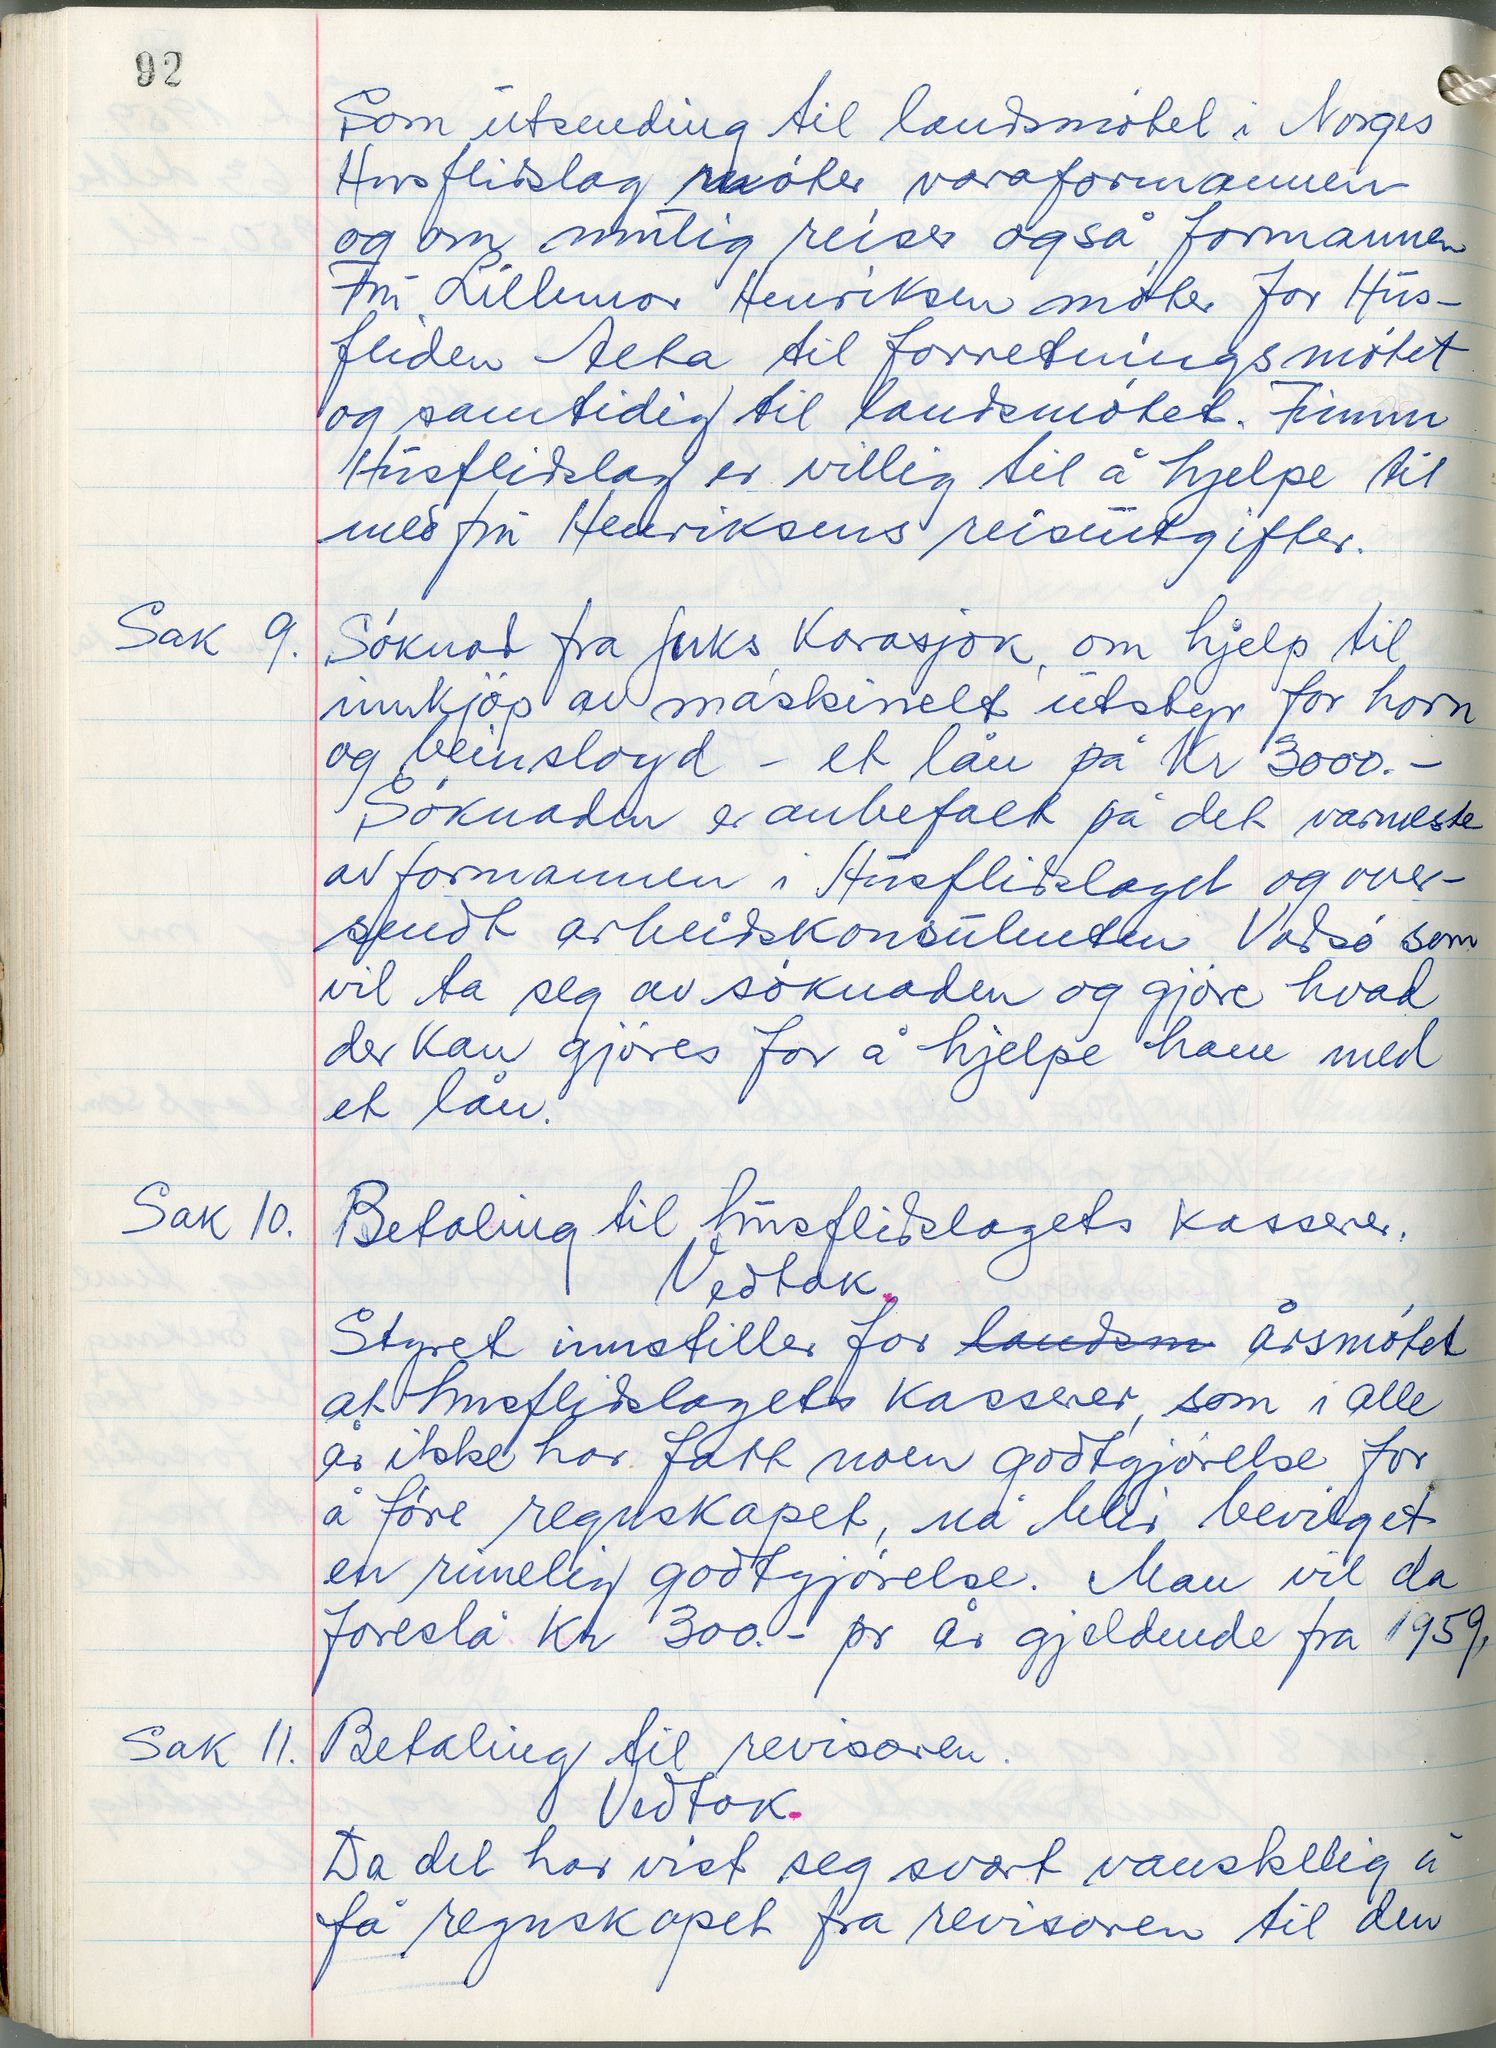 92
Som utsending til landsmötet i Norges
Husflidslag möter varaformannen
og om mulig reiser også formannen
Fru Lillemor Henriksen möter for Hus-
fliden Aeta til forretningsmötet
og samtidig til landsmötet. Finnm
Husflidslag er villig til å hjelpe til
med fru Henriksens reiseutgifter.
Sak 9. Söknad fra Juks Karasjok, om hjelp til
innkjöp av maskinelt utstyr for horn
og beinsloyd - et lån på Kr 3000.-
Söknaden er anbefalt på det varmeste
av formannen i Husflidslaget og over-
sendt arbeidskonsulenten Vadsö som
vil ta seg av söknaden og gjöre hvad
der kan gjöres for å hjelpe ham med
et lån.
Sak 10. Betaling til husflidslagets kasserer.
Vedtak.
Styret innstiller for landsm årsmötet
at husflidslagets kasserer, som i alle
år ikke har fått noen godtgjörelse for
å före regnskapet, nå blir bevilget
en rimelig godtgjörelse. Man vil da
foreslå Kr 300.- pr år gjeldende fra 1959.
Sak 11. Betaling til revisoren.
Vedtak.
Da det har vist seg svært vanskelig å
få regnskapet fra revisoren til den